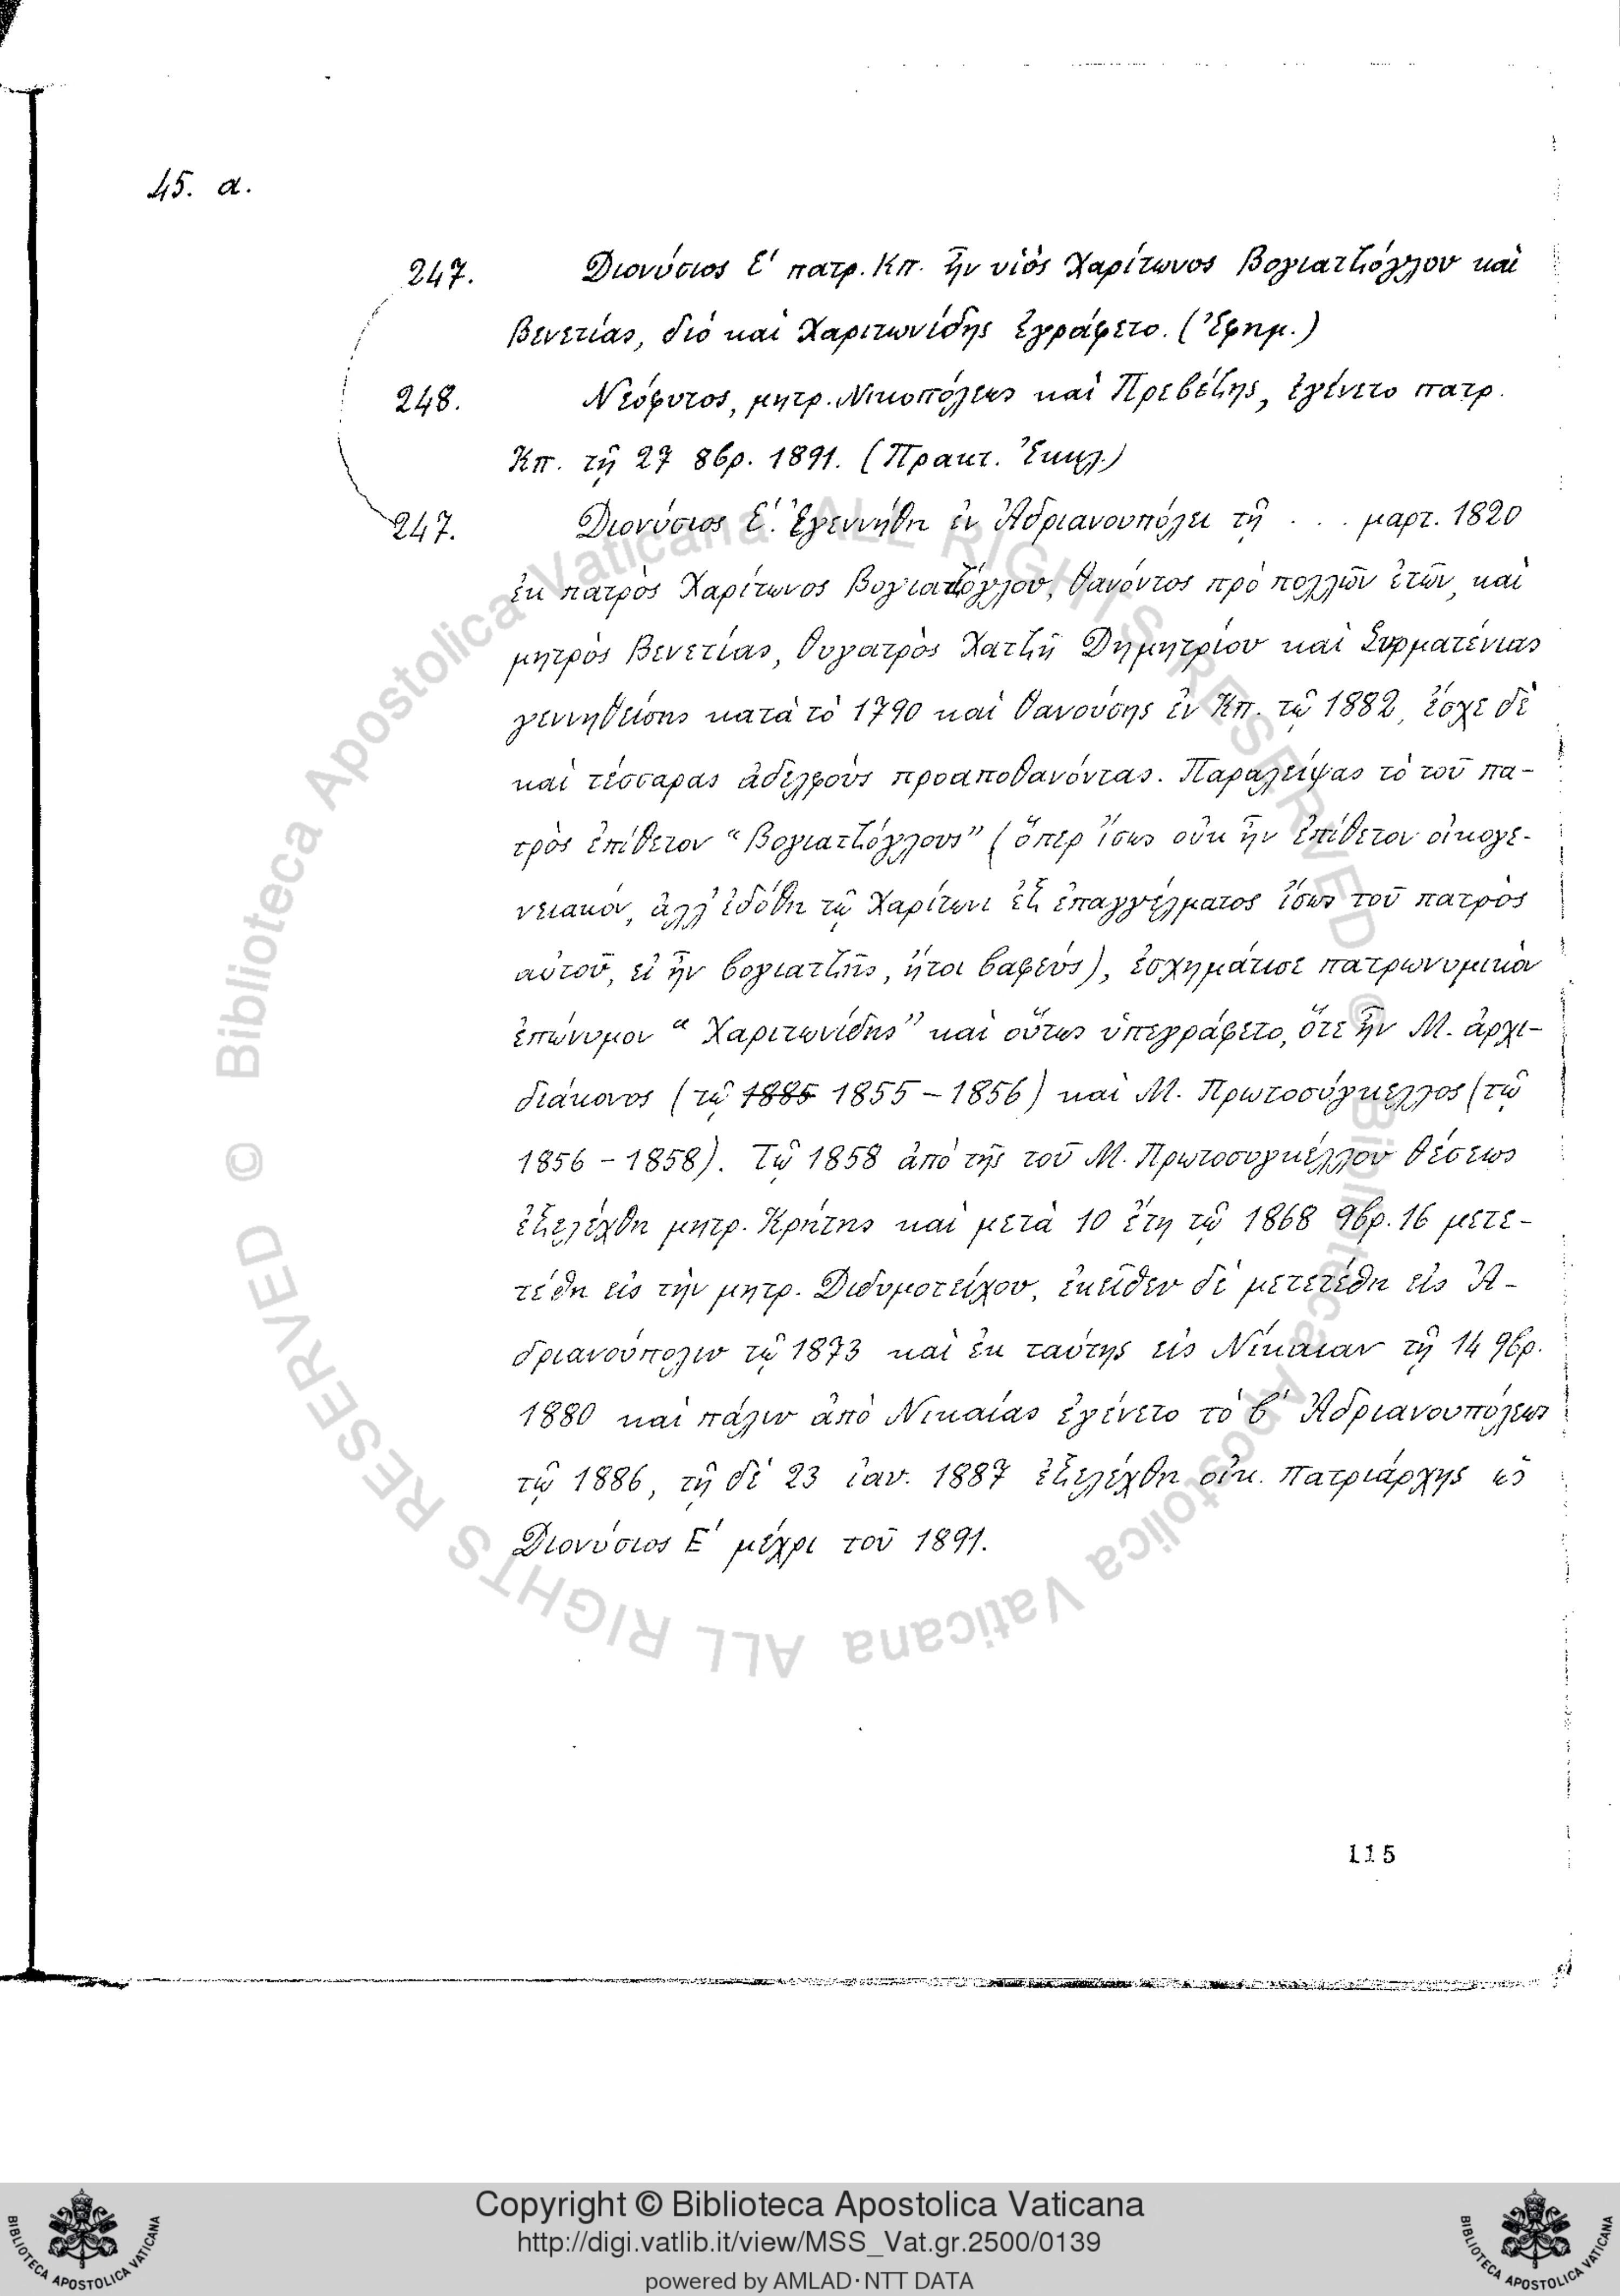 45. α.
247. Διονύσιος Ε' πατρ. Κπ. ἦν υἱὸς Χαρίτωνος Βογιατζόγλου καὶ
Βενετίας, διὸ καὶ Χαριτωνίδης ἐγράφετο. (Ἐφημ.)
248. Νεόφυτος, μητρ. Νικοπόλεως καὶ Πρεβέζης, ἐγένετο πατρ.
Κπ. τῇ 27 8βρ. 1891. (Πρακτ. Ἐκκλ.)
247. Διονύσιος Ε'. Ἐγεννήθη ἐν Ἀδριανουπόλει τῇ . . . μαρτ. 1820
ἐκ πατρὸς Χαρίτωνος Βογιατζόγλου, θανόντος πρὸ πολλῶν ἐτῶν, καὶ
μητρὸς Βενετίας, θυγατρὸς Χατζῆ Δημητρίου καὶ Συρματένιας
γεννηθείσης κατὰ τὸ 1790 καὶ θανούσης ἐν Κπ. τῷ 1882, ἔσχε δὲ
καὶ τέσσαρας ἀδελφοὺς προαποθανόντας. Παραλείψας τὸ τοῦ πα-
τρὸς ἐπίθετον “Βογιατζόγλους” (ὅπερ ἴσως οὐκ ἦν ἐπίθετον οἰκογε-
νειακόν, ἀλλ' ἐδόθη τῷ Χαρίτωνι ἐξ ἐπαγγέλματος ἴσως τοῦ πατρὸς
αὐτοῦ, εἰ ἦν βογιατζῆς, ἤτοι βαφεύς), ἐσχημάτισε πατρωνυμικὸν
ἐπώνυμον “Χαριτωνίδης” καὶ οὕτως ὑπεγράφετο, ὅτε ἦν Μ. ἀρχι-
διάκονος (τῷ 1885 1855 – 1856) καὶ Μ. Πρωτοσύγκελλος (τῷ
1856 – 1858). Τῷ 1858 ἀπὸ τῆς τοῦ Μ. Πρωτοσυγκέλλου θέσεως
ἐξελέχθη μητρ. Κρήτης καὶ μετὰ 10 ἔτη τῷ 1868 9βρ. 16 μετε-
τέθη εἰς τὴν μητρ. Διδυμοτείχου, ἐκεῖθεν δὲ μετετέθη εἰς Ἀ-
δριανούπολιν τῷ 1873 καὶ ἐκ ταύτης εἰς Νίκαιαν τῇ 14 9βρ.
1880 καὶ πάλιν ἀπὸ Νικαίας ἐγένετο τὸ β' Ἀδριανουπόλεως
τῷ 1886, τῇ δὲ 23 ἰαν. 1887 ἐξελέχθη οἰκ. πατριάρχης ὡς
Διονύσιος Ε' μέχρι τοῦ 1891.
115
© Biblioteca Apostolica Vaticana ALL RIGHTS RESERVED © Biblioteca Apostolica Vaticana ALL RIGHTS RESERVED
Copyright © Biblioteca Apostolica Vaticana
http://digi.vatlib.it/view/MSS_Vat.gr.2500/0139
powered by AMLAD·NTT DATA
BIBLIOTECA APOSTOLICA VATICANA
BIBLIOTECA APOSTOLICA VATICANA